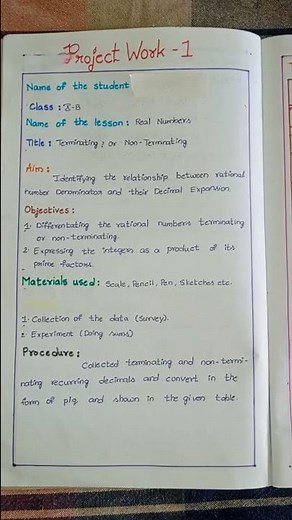 Project Work - 1
Name of the student
Class : X-B
Name of the lesson : Real Numbers
Title : Terminating ; or Non-Terminating
Aim :
Identifying the relationship between rational
number Denominator and their Decimal Expansion.
Objectives :
1. Differentiating the rational numbers terminating
or non-terminating.
2. Expressing the integers as a product of its
prime factors.
Materials used : Scale, Pencil, Pen, Sketches etc.
1. Collection of the data (Survey).
2. Experiment (Doing sums)
Procedure :
Collected terminating and non-termi-
nating recurring decimals and convert in the
form of p/q and shown in the given table.